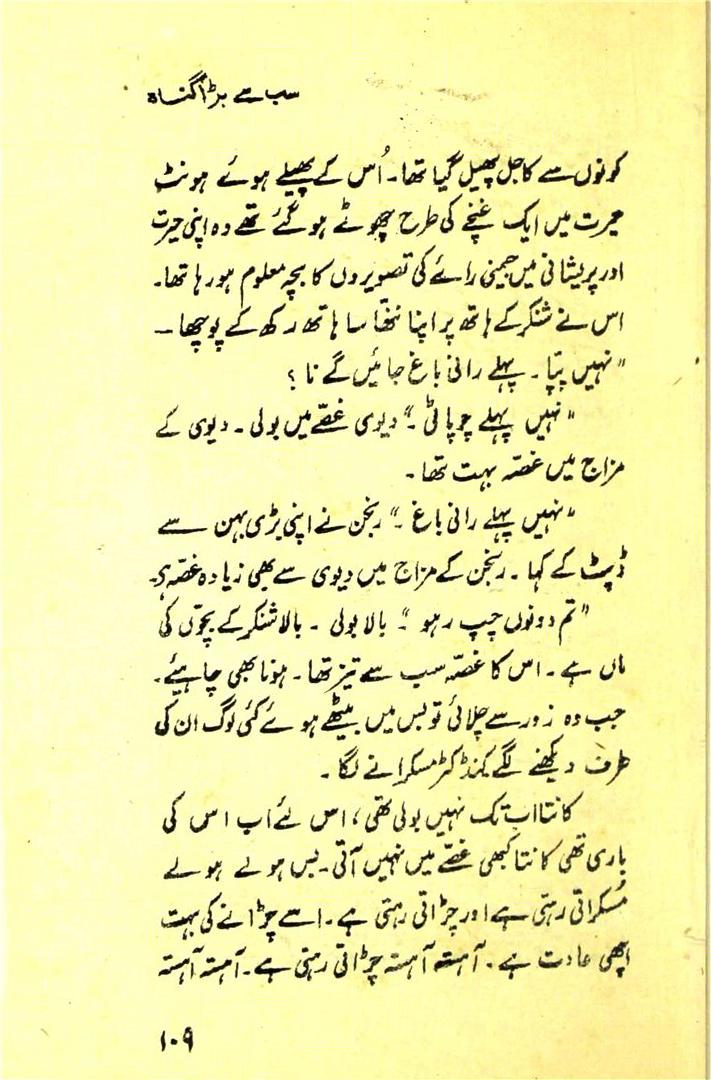 سب سے بڑا گناہ
کونوں سے کاجل پھیل گیا تھا۔ اُس کے پھیلے ہوئے ہونٹ
حیرت میں ایک غنچے کی طرح چھوٹے ہو گئے تھے وہ اپنی حیرت
اور پریشانی میں جیمنی رائے کی تصویروں کا بچہ معلوم ہو رہا تھا۔
اس نے شنکر کے ہاتھ پر اپنا ننھا سا ہاتھ رکھ کے پوچھا۔
"نہیں پپا۔ پہلے رانی باغ جائیں گے نا؟
"نہیں پہلے چوپاٹی۔" دیوی غصّے میں بولی۔ دیوی کے
مزاج میں غصّہ بہت تھا۔
"نہیں پہلے رانی باغ۔" رنجن نے اپنی بڑی بہن سے
ڈپٹ کے کہا۔ رنجن کے مزاج میں دیوی سے بھی زیادہ غصّہ ہے۔
"تم دونوں چپ رہو"۔ بالا بولی۔ بالا شنکر کے بچّوں کی
ماں ہے۔ اس کا غصّہ سب سے تیز تھا۔ ہونا بھی چاہیئے۔
جب وہ زور سے چلائی تو بس میں بیٹھے ہوئے کئی لوگ ان کی
طرف دیکھنے لگے کنڈکٹر مسکرانے لگا۔
کانتا اب تک نہیں بولی تھی، اس لئے اب اس کی
باری تھی کانتا کبھی غصّے میں نہیں آتی۔ بس ہولے ہولے
مُسکراتی رہتی ہے اور چڑاتی رہتی ہے۔ اسے چڑانے کی بہت
اچھی عادت ہے۔ آہستہ آہستہ چڑاتی رہتی ہے۔ آہستہ آہستہ
۱۰۹